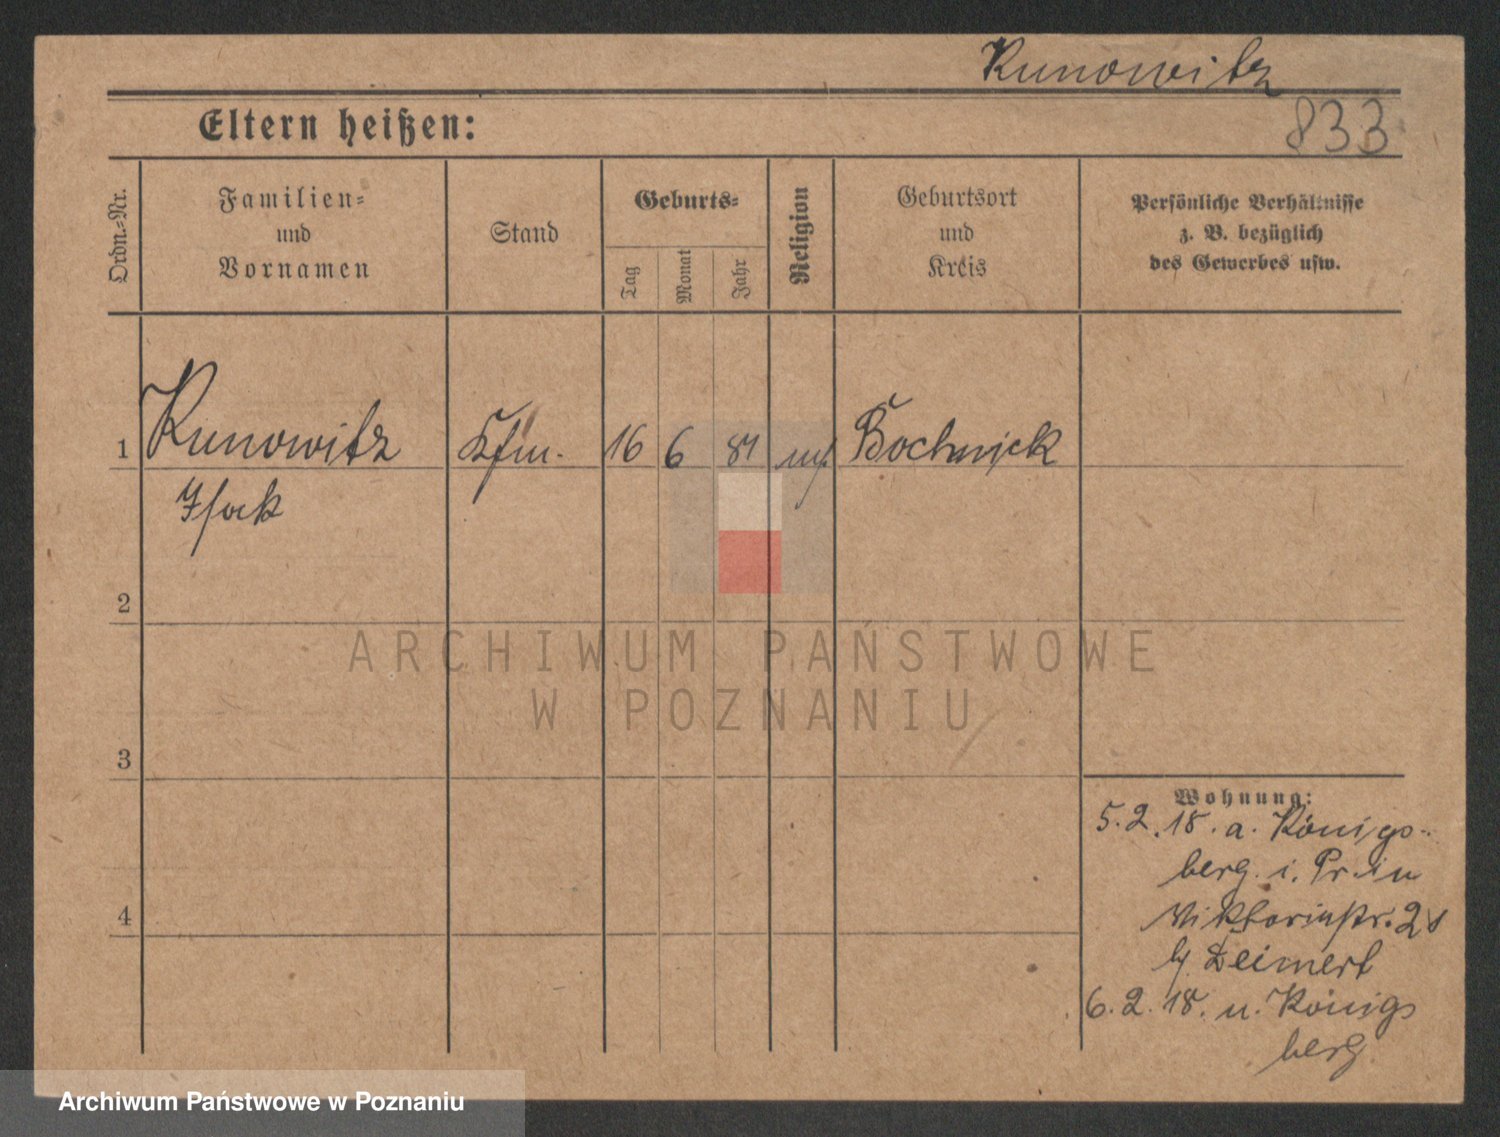 Kunowitz
833
Eltern heißen:
Ordn.=Nr.
Familien=
und
Vornamen
Stand
Geburts=
Tag
Monat
Jahr
Religion
Geburtsort
und
Kreis
Persönliche Verhältnisse
z. B. bezüglich
des Gewerbes usw.
1 Kunowitz Kfm. 16 6 81
Isack
2
3
4
Wohnung:
5.2.18. a. Königs-
berg. i. Pr. in
Viktoriastr.
Deimert
6.2.18. n. Königs
berg
ARCHIWUM PAŃSTWOWE
W POZNANIU
Archiwum Państwowe w Poznaniu